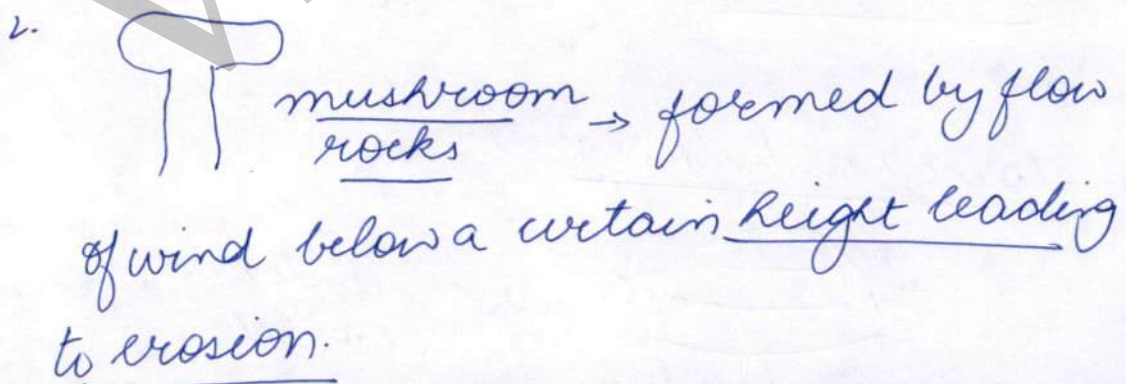 2.
mushroom → formed by flow
rocks
of wind below a certain height leading
to erosion.